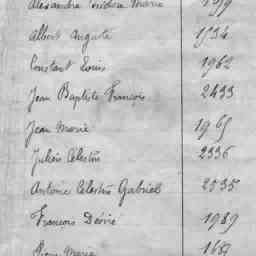 Alexandre Frédéric Marie 1999
Albert Auguste 1934
Constant Louis 1962
Jean Baptiste François 2433
Jean Marie 1965
Julien Célestin 2336
Antoine Célestin Gabriel 2535
François Désiré 1989
Marie 1687